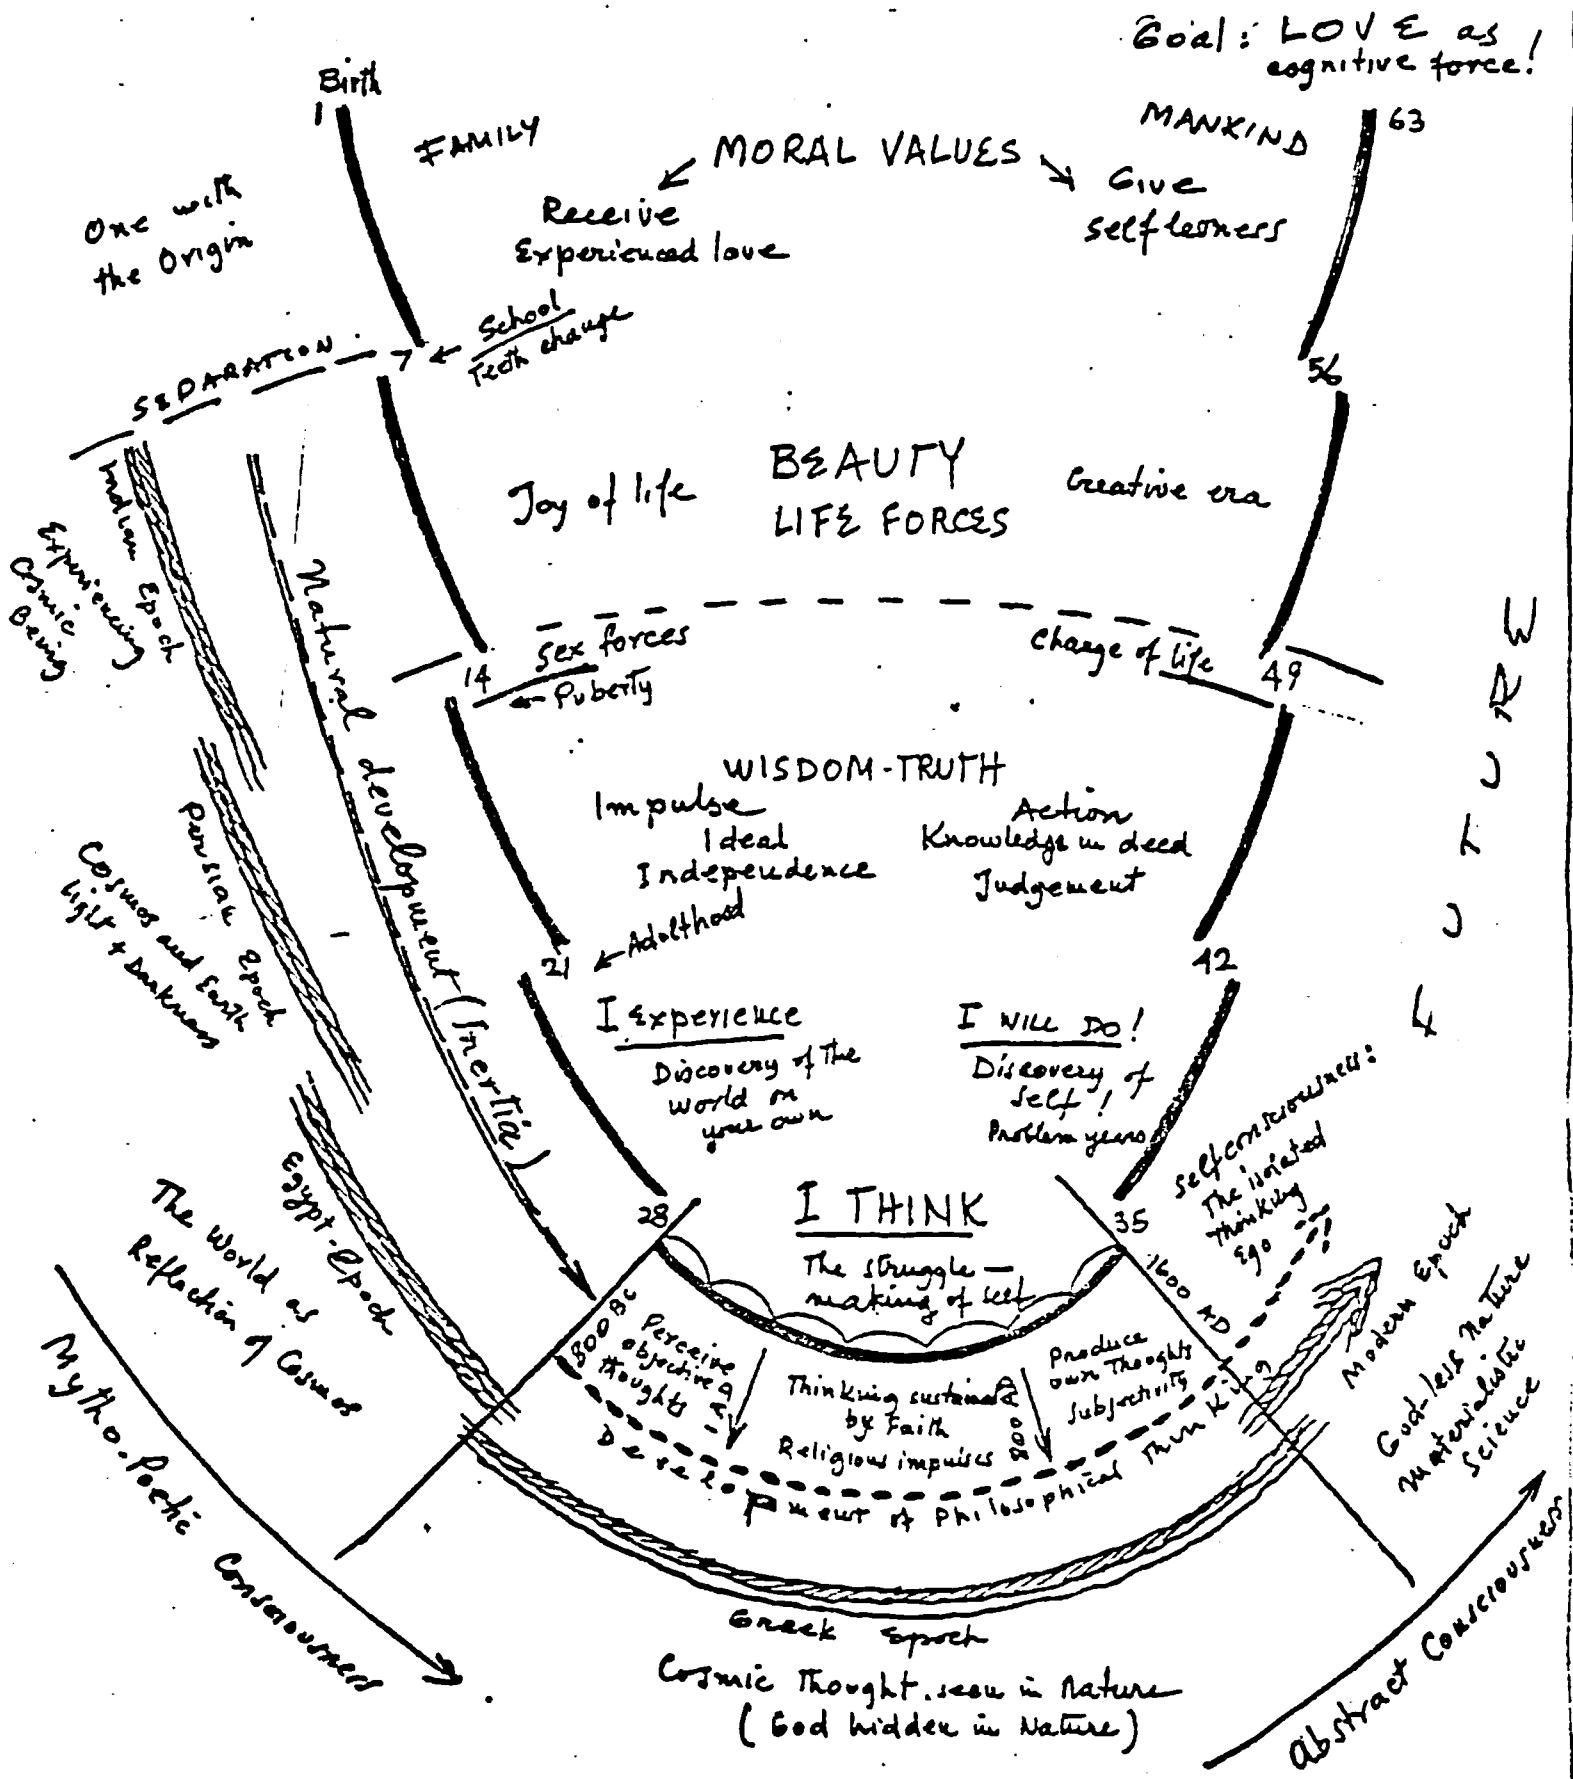 Goal: LOVE as
cognitive force!
Birth
1
63
FAMILY
MORAL VALUES
MANKIND
Receive
Experienced love
Give
selflessness
One with
the Origin
School
Teeth change
7
56
SEPARATION
BEAUTY
LIFE FORCES
Joy of life
Creative era
Indian Epoch
Experiencing
Cosmic
Being
Natural development (Inertia)
Sex forces
Puberty
14
Change of life
49
WISDOM-TRUTH
Impulse
Ideal
Independence
Action
Knowledge in deed
Judgement
Persian Epoch
Cosmos and Earth
Light + Darkness
Adulthood
21
42
FUTURE
I Experience
Discovery of the
world on
your own
I WILL DO!
Discovery of
self!
Problem years
Selfconsciousness:
The isolated
thinking
Ego
28
35
I THINK
The struggle —
making of self
Egypt-Epoch
The World as
Reflection of Cosmos
800 BC
Perceive
objective
thoughts
Thinking sustained
by Faith
Religious impulses
800 AD
Produce
own Thoughts
subjectivity
1600 AD
Development of Philosophical Thinking
Modern Epoch
God-less Nature
Materialistic
Science
Mytho-Poetic Consciousness
Greek Epoch
Cosmic Thought seen in Nature
(God hidden in Nature)
Abstract Consciousness